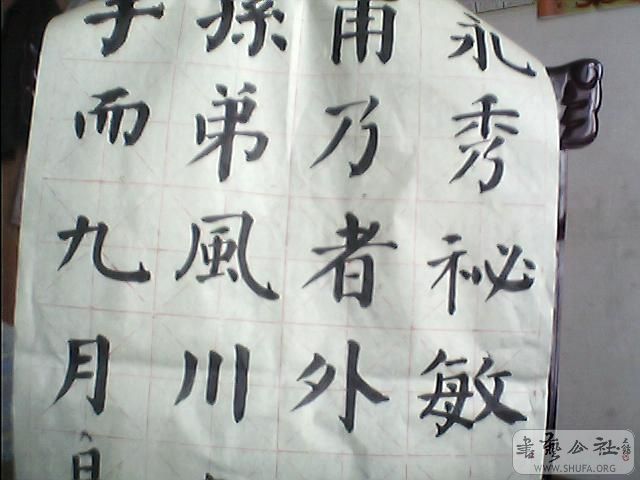 永秀祕敏
甫乃者外
孫弟風川
子而九月
書藝公社
WWW.SHUFA.ORG